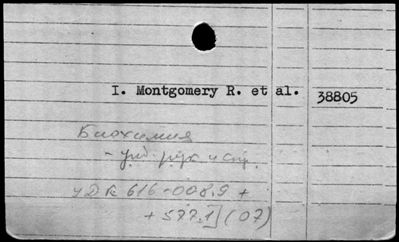 I. Montgomery R. et al. 38805
Биохимия
- уч. рук. и спр.
УДК 616-008.9 +
+ 577.1] (07)